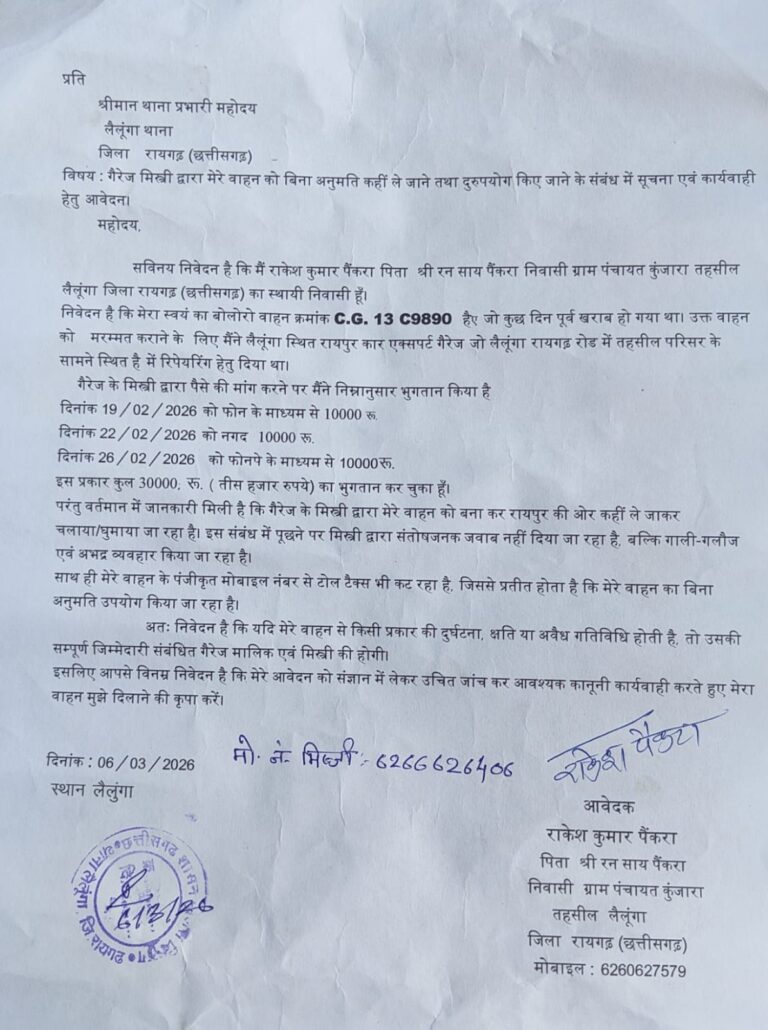 प्रति
श्रीमान थाना प्रभारी महोदय
लैलूंगा थाना
जिला रायगढ़ (छत्तीसगढ़)
विषय : गैरेज मिस्त्री द्वारा मेरे वाहन को बिना अनुमति कहीं ले जाने तथा दुरुपयोग किए जाने के संबंध में सूचना एवं कार्यवाही
हेतु आवेदन।
महोदय,
सविनय निवेदन है कि मैं राकेश कुमार पैंकरा पिता श्री रन साय पैंकरा निवासी ग्राम पंचायत कुंजारा तहसील
लैलूंगा जिला रायगढ़ (छत्तीसगढ़) का स्थायी निवासी हूँ।
निवेदन है कि मेरा स्वयं का बोलोरो वाहन क्रमांक C.G. 13 C9890 हैए जो कुछ दिन पूर्व खराब हो गया था। उक्त वाहन
को मरम्मत कराने के लिए मैंने लैलूंगा स्थित रायपुर कार एक्सपर्ट गैरेज जो लैलूंगा रायगढ़ रोड में तहसील परिसर के
सामने स्थित है में रिपेयरिंग हेतु दिया था।
गैरेज के मिस्त्री द्वारा पैसे की मांग करने पर मैंने निम्नानुसार भुगतान किया है
दिनांक 19/02/2026 को फोन के माध्यम से 10000 रू.
दिनांक 22/02/2026 को नगद 10000 रू.
दिनांक 26/02/2026 को फोनपे के माध्यम से 10000रू.
इस प्रकार कुल 30000, रू. ( तीस हजार रुपये) का भुगतान कर चुका हूँ।
परंतु वर्तमान में जानकारी मिली है कि गैरेज के मिस्त्री द्वारा मेरे वाहन को बना कर रायपुर की ओर कहीं ले जाकर
चलाया/घुमाया जा रहा है। इस संबंध में पूछने पर मिस्त्री द्वारा संतोषजनक जवाब नहीं दिया जा रहा है, बल्कि गाली-गलौज
एवं अभद्र व्यवहार किया जा रहा है।
साथ ही मेरे वाहन के पंजीकृत मोबाइल नंबर से टोल टैक्स भी कट रहा है, जिससे प्रतीत होता है कि मेरे वाहन का बिना
अनुमति उपयोग किया जा रहा है।
अतः निवेदन है कि यदि मेरे वाहन से किसी प्रकार की दुर्घटना, क्षति या अवैध गतिविधि होती है, तो उसकी
सम्पूर्ण जिम्मेदारी संबंधित गैरेज मालिक एवं मिस्त्री की होगी।
इसलिए आपसे विनम्र निवेदन है कि मेरे आवेदन को संज्ञान में लेकर उचित जांच कर आवश्यक कानूनी कार्यवाही करते हुए मेरा
वाहन मुझे दिलाने की कृपा करें।
दिनांक : 06/03/2026
मो. नं. मिस्त्री :- 6266626406
राकेश पैंकरा
स्थान लैलुंगा
आवेदक
राकेश कुमार पैंकरा
पिता श्री रन साय पैंकरा
निवासी ग्राम पंचायत कुंजारा
तहसील लैलूंगा
जिला रायगढ़ (छत्तीसगढ़)
मोबाइल : 6260627579
छत्तीसगढ़ शासन
थाना लैलूंगा, जि रायगढ़
6/3/26